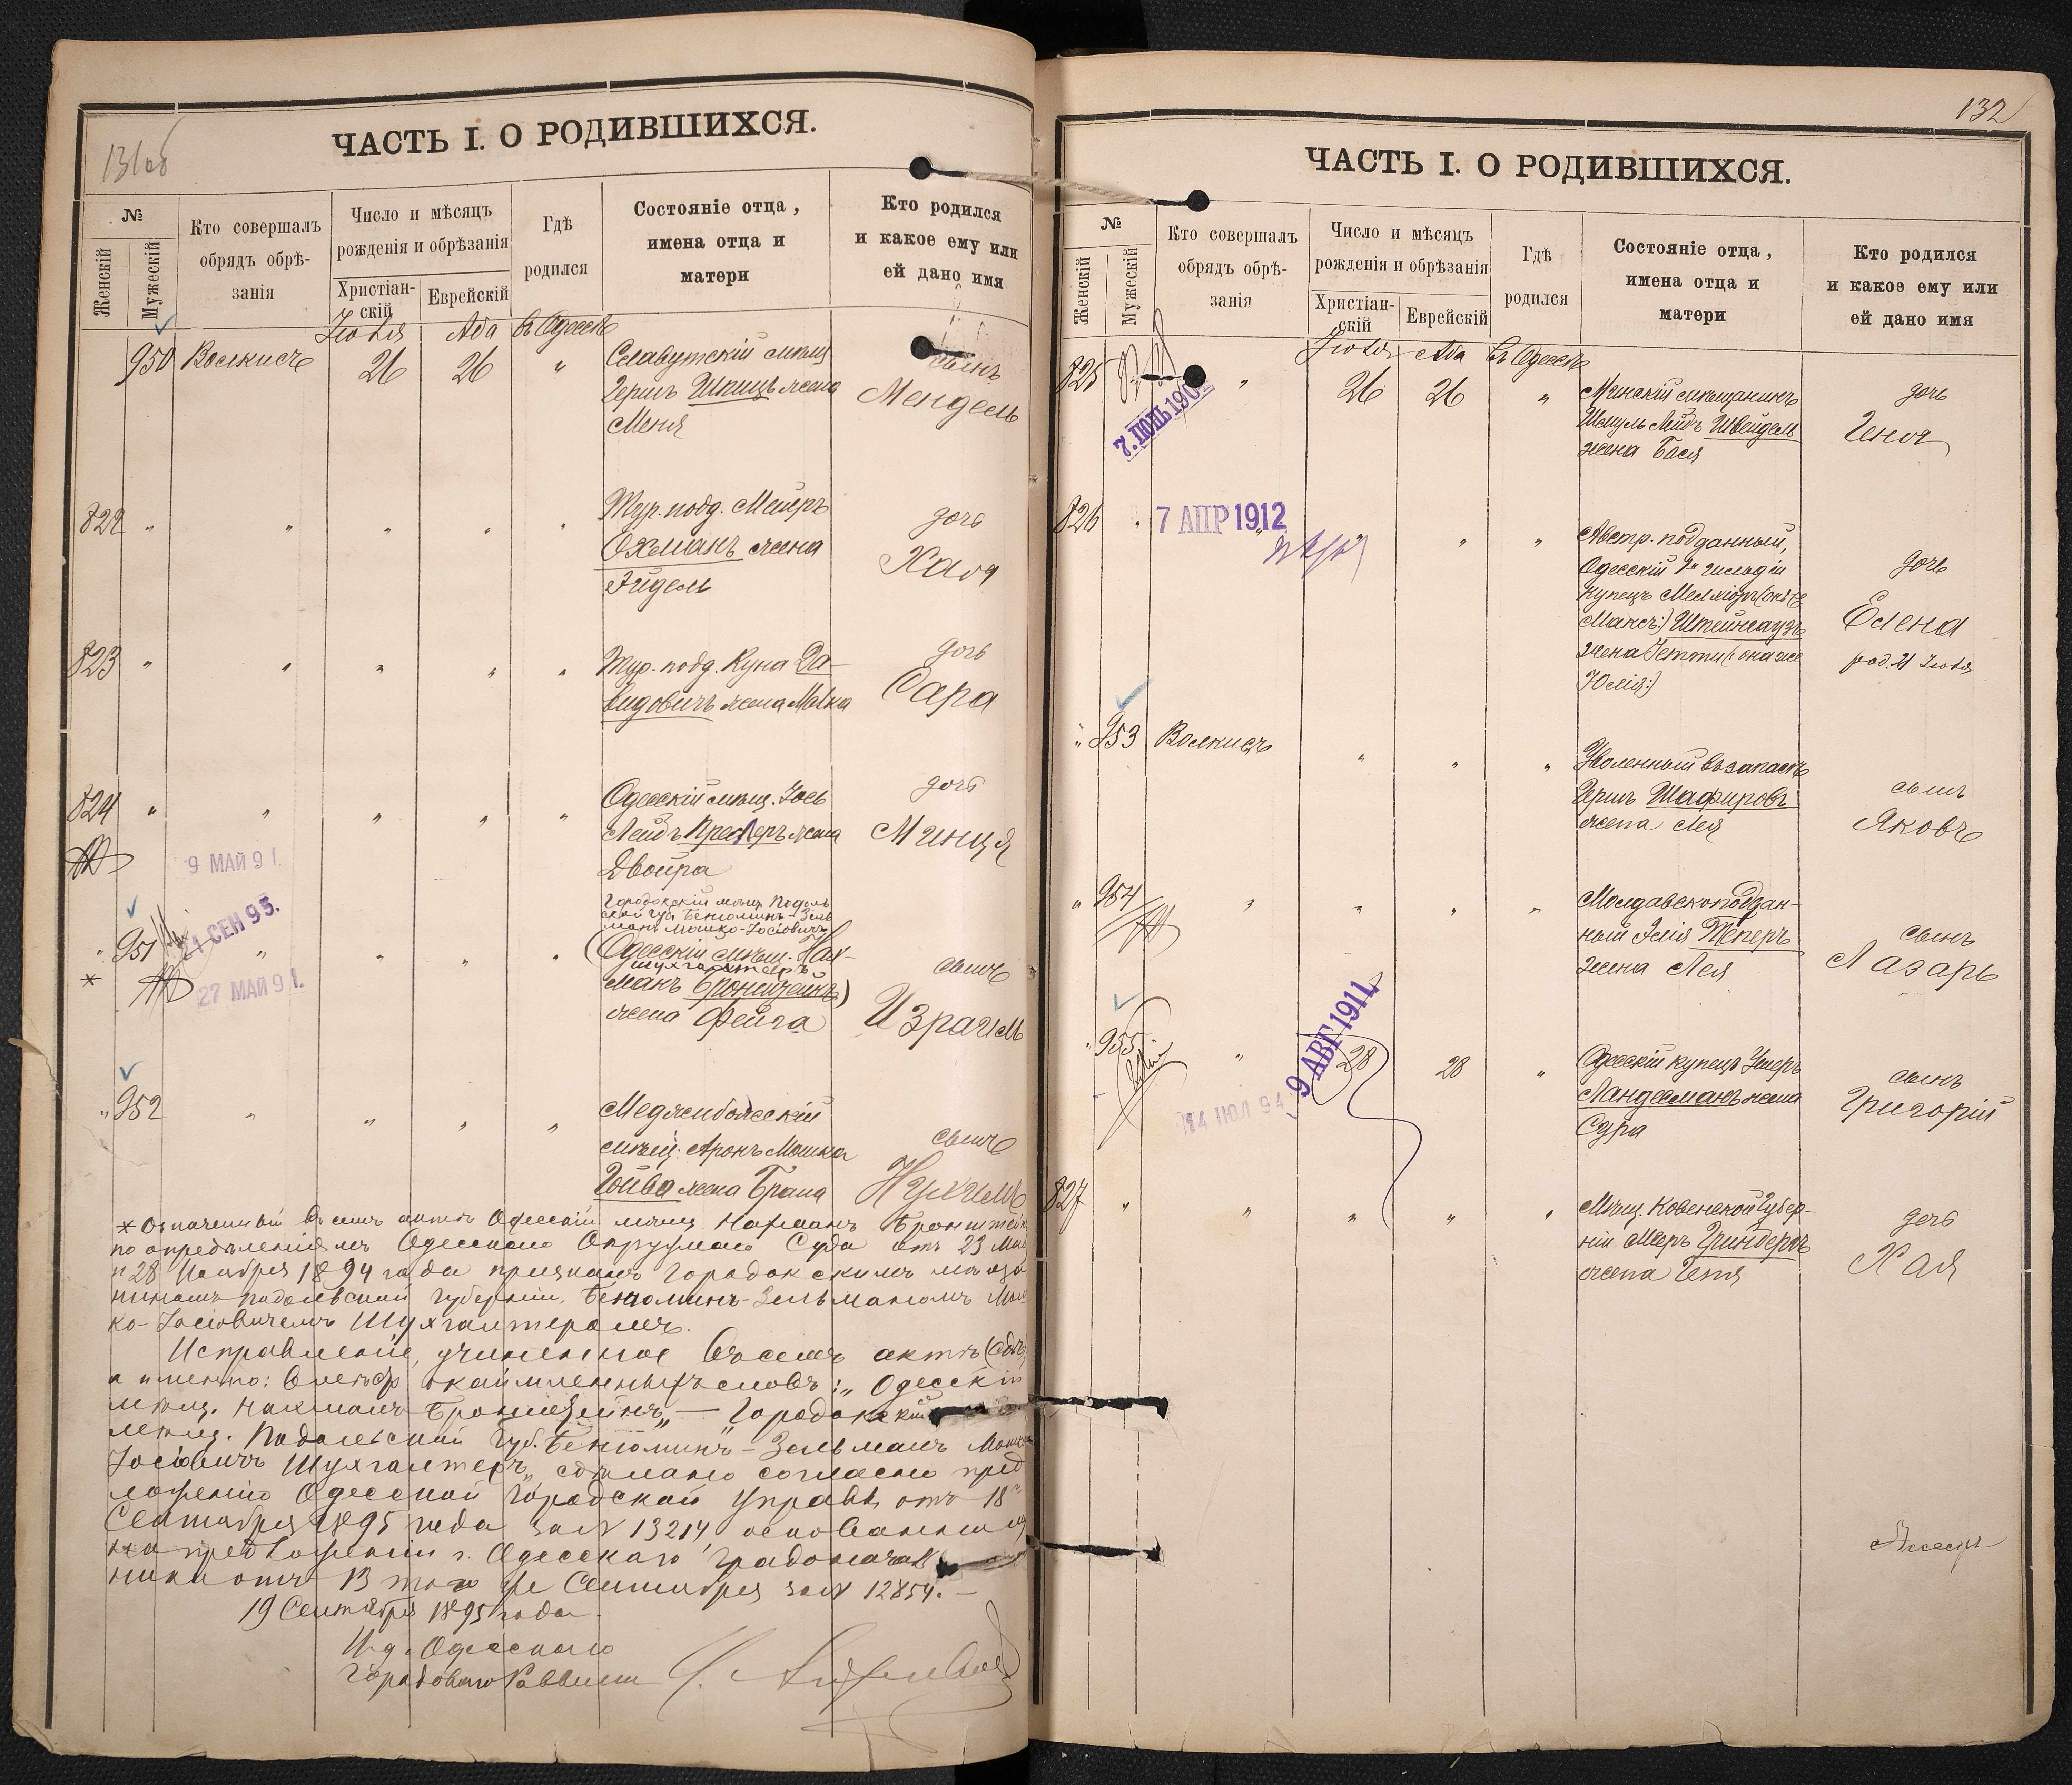 131 об
ЧАСТЬ I. О РОДИВШИХСЯ.
№
Женскій
Мужескій
Кто совершалъ
обрядъ обрѣ-
занія
Число и мѣсяцъ
рожденія и обрѣзанія
Христіан-
скій
Еврейскій
Гдѣ
родился
Состояніе отца,
имена отца и
матери
Кто родился
и какое ему или
ей дано имя
Іюля Аба въ Одессѣ
950 Волкисъ 26 26 " Славутскій мѣщ. сынъ
Гершъ Шпицъ жена Мендель
Меня
822 " " " " " Тур. подд. Маиеръ дочь
Охманъ жена Хая
Эйдель
823 " " " " " Тур. подд. Куна Да- дочь
видовичъ жена Малка Сара
824 " " " " " Одесскій мѣщ. Іось дочь
Лейбъ Преслеръ жена Минця
Двойра
9 МАЙ 91.
Городокскій мѣщ. Подоль
ской губ. Беніоминъ-Зель
манъ Мошко-Іосіовичъ
" 951 21 СЕН 95. " " " " (Одесскій мѣщ. Нах-
Шухгалтеръ
* 27 МАЙ 91. манъ Бронштейнъ) сынъ
жена Фейга Израиль
" 952 " " " " Меджибожскій
мѣщ. Аронъ Мошка сынъ
Гойва жена Брана Нухимъ
* Означенный въ семъ актѣ Одесскій мѣщ. Нахманъ Бронштейнъ
по опредѣленіямъ Одесскаго Окружнаго Суда отъ 23 Мая
и 28 Ноября 1894 года признанъ Городокскимъ мѣща
ниномъ Подольской губерніи, Беніоминъ-Зельманомъ Мош
ко-Іосіовичемъ Шухгалтеромъ.
Исправленіе, учиненное въ семъ актѣ
а именно: вмѣсто окаймленныхъ словъ: „Одесскій
мѣщ. Нахманъ Бронштейнъ" — „Городокскій
мѣщ. Подольской Губ. Беніоминъ-Зельманъ Мошко
Іосіовичъ Шухгалтеръ" сдѣлано согласно пред
ложенію Одесской Городской Управы отъ 18го
Сентября 1895 года за № 13214 основанному
на предложеніи г. Одесскаго Градоначаль
ника отъ 13 того же Сентября за № 12854. —
19 Сентября 1895 года.
И. д. Одесскаго
Городового Раввина
132
ЧАСТЬ I. О РОДИВШИХСЯ.
№
Женскій
Мужескій
Кто совершалъ
обрядъ обрѣ-
занія
Число и мѣсяцъ
рожденія и обрѣзанія
Христіан-
скій
Еврейскій
Гдѣ
родился
Состояніе отца,
имена отца и
матери
Кто родился
и какое ему или
ей дано имя
Іюля Аба въ Одессѣ
825 " 26 26 " Минскій мѣщанинъ дочь
Шмуль Лейбъ Швейдель Геня
жена Бася
826 " 7 АПР 1912 " " Австр. подданный,
Одесскій 1й гильдіи дочь
купецъ Мелхіоръ (онъ же
Максъ:) Штейнгаузъ Елена
жена Бетти (: она же род. 21 Іюля
Юлія:)
" 953 Волкисъ " " " Уволенный въ запасъ
Гершъ Шафировъ сынъ
жена Лея Яковъ
" 954 " " " " Молдавскоподдан-
ный Элія Теперъ сынъ
жена Лея Лазарь
9 АВГ 1911
" 955 " 28 28 " Одесскій купецъ Умеръ сынъ
14 ІЮЛ 94 Ландесманъ жена Григорій
Сура
827 " " " " " Мѣщ. Ковенской Губер- дочь
ніи Меръ Гринбергъ Хая
жена Гетя